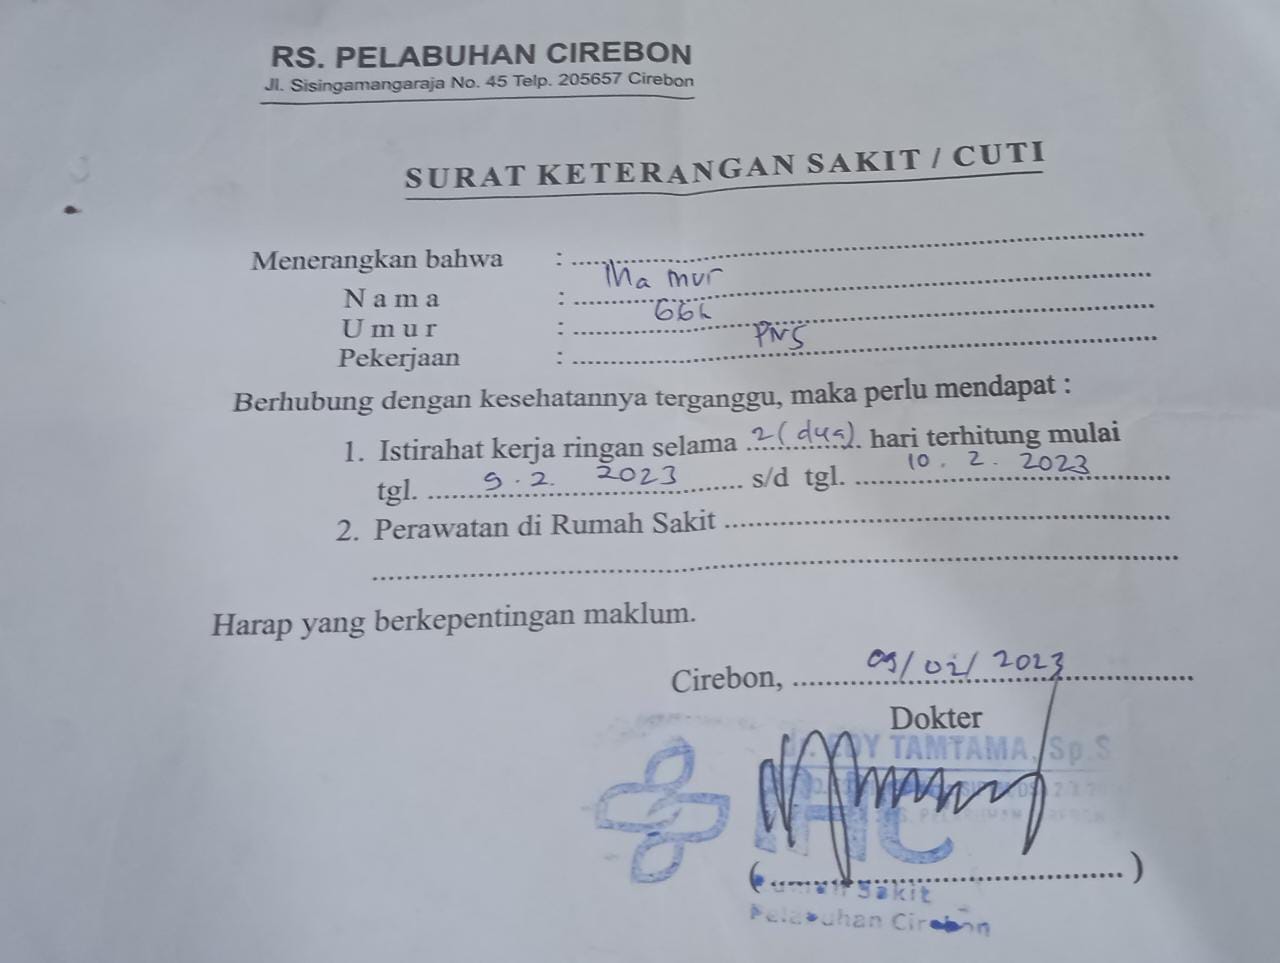 RS. PELABUHAN CIREBON
Jl. Sisingamangaraja No. 45 Telp. 205657 Cirebon
SURAT KETERANGAN SAKIT / CUTI
Menerangkan bahwa : ........................
Nama : Ma mur
Umur : 66
Pekerjaan : PNS
Berhubung dengan kesehatannya terganggu, maka perlu mendapat :
1. Istirahat kerja ringan selama 2 (dua) hari terhitung mulai
tgl. 9. 2. 2023 s/d tgl. 10. 2. 2023
2. Perawatan di Rumah Sakit ........................
Harap yang berkepentingan maklum.
Cirebon, 09/02/2023
Dokter
EDY TAMTAMA, Sp.S
IHC
(........................)
Rumah Sakit
Pelabuhan Cirebon